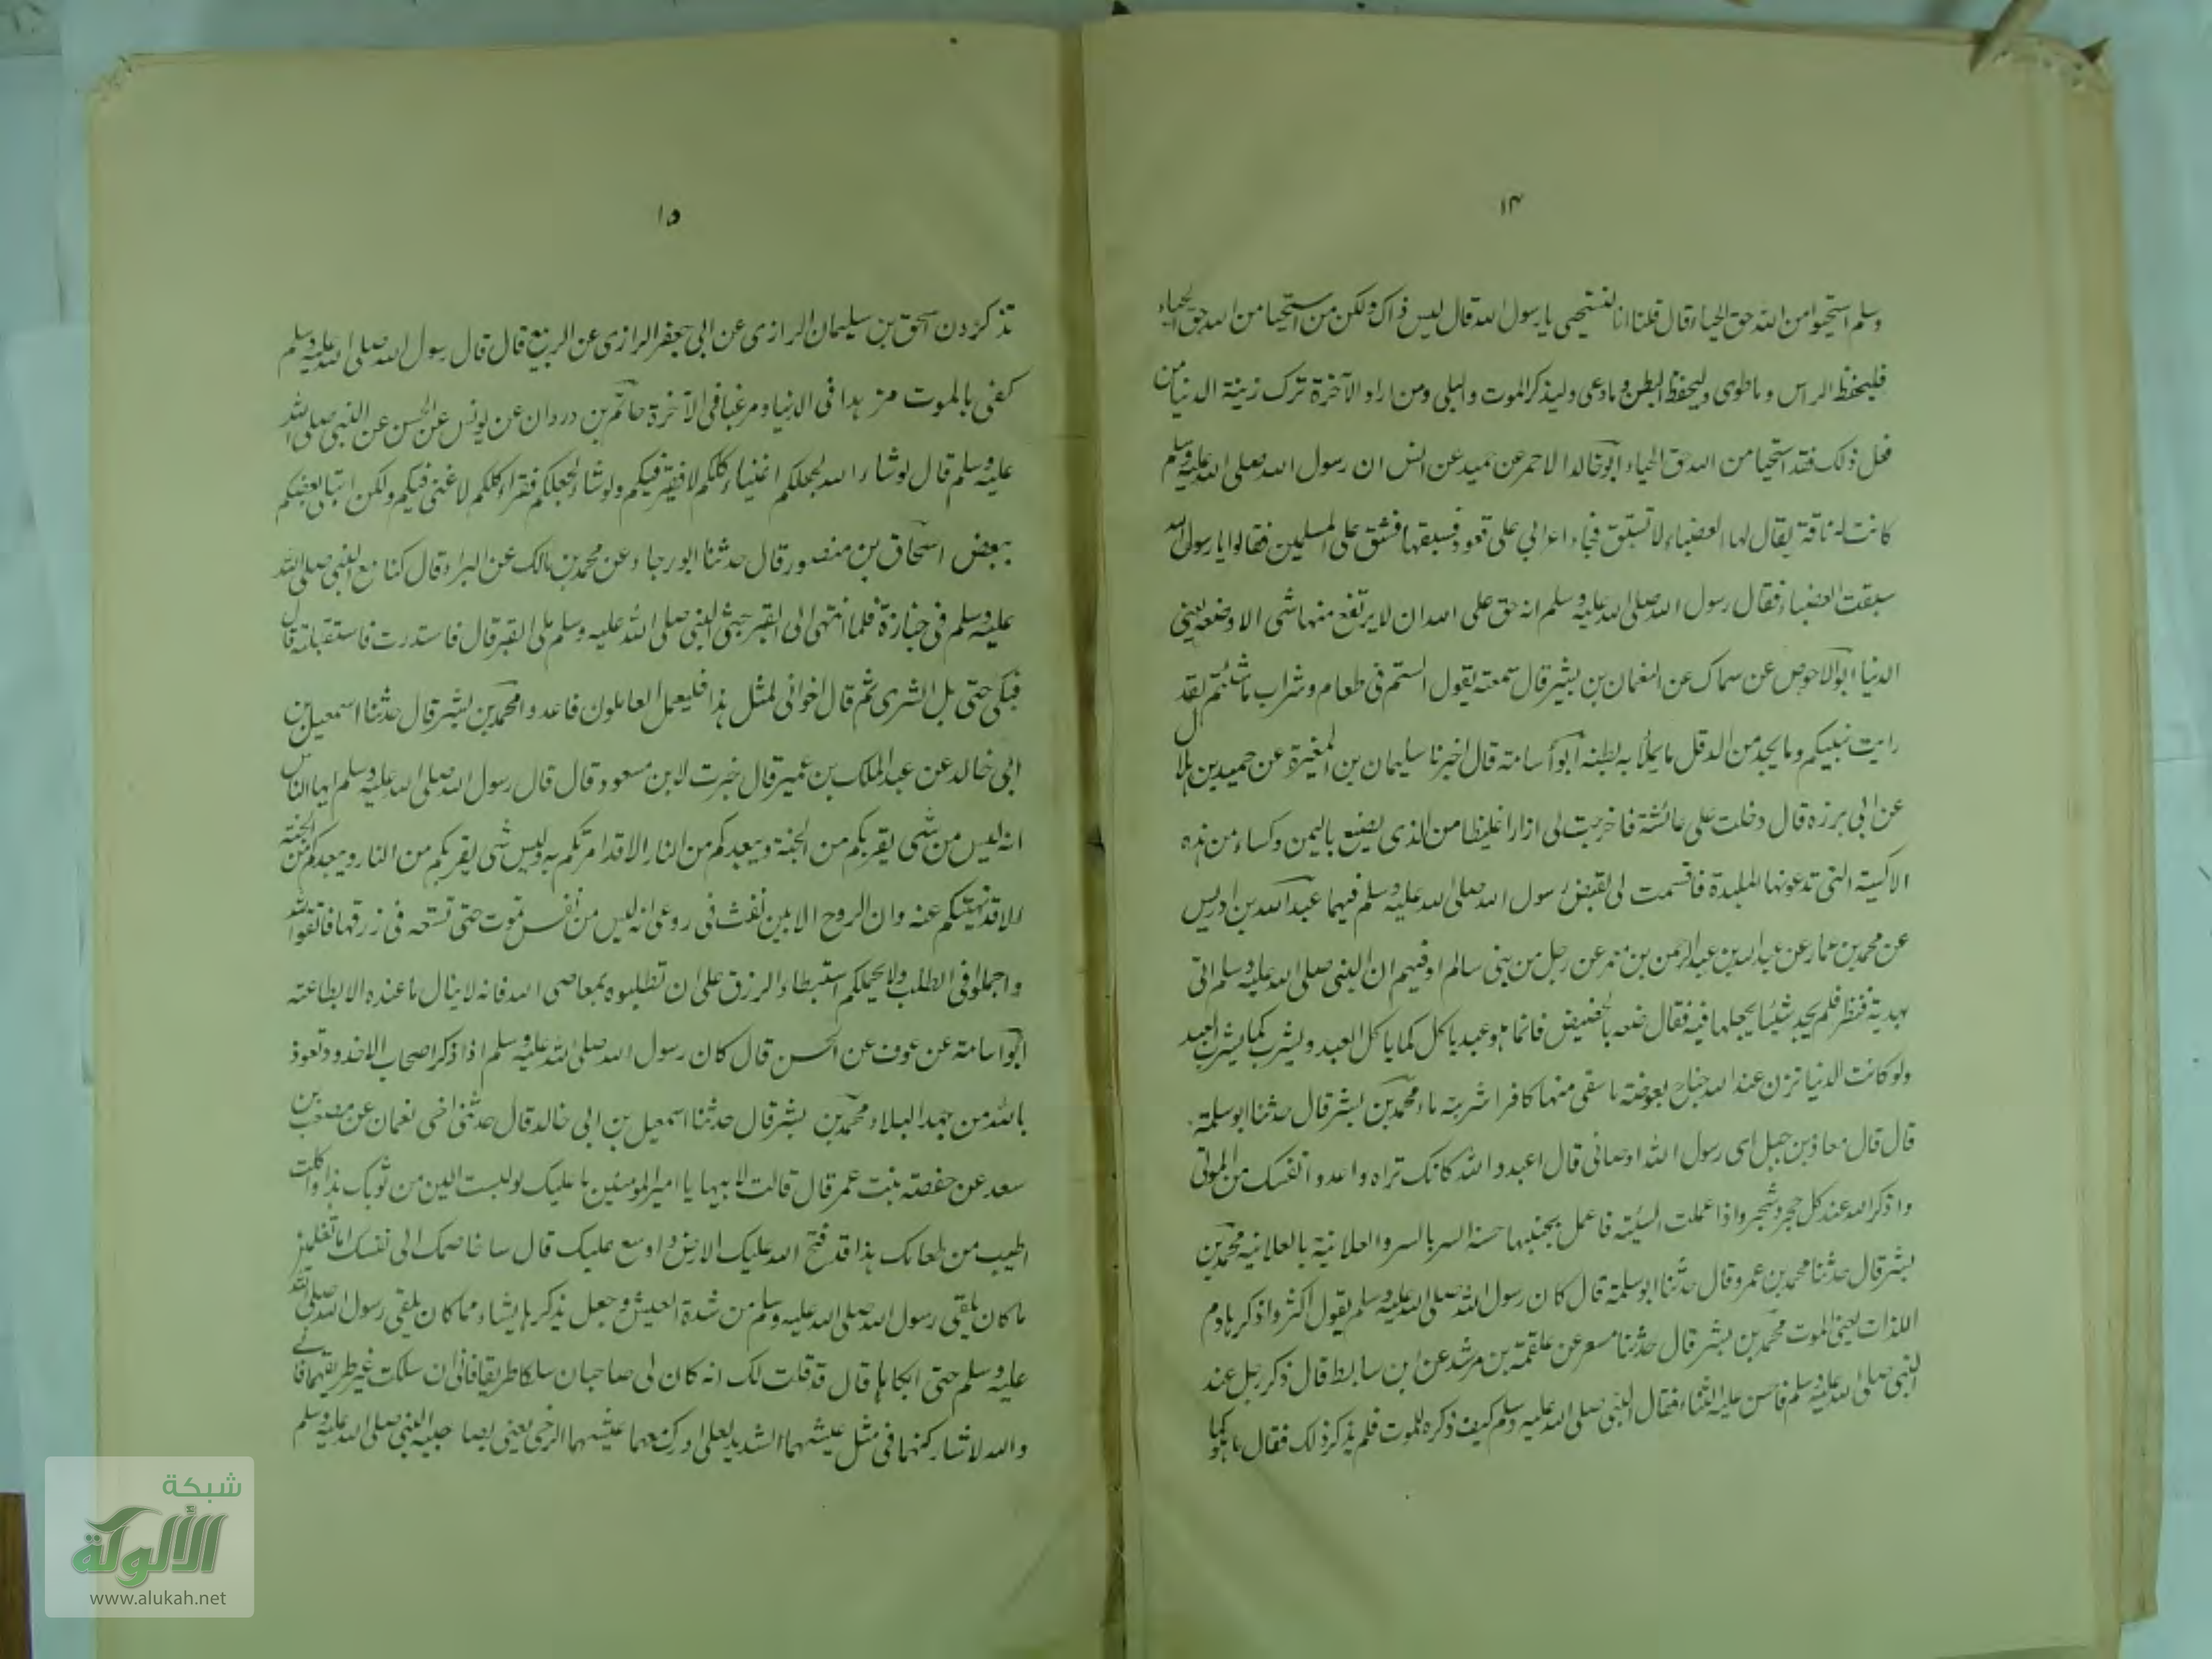 ۱۴
وسلم استحيوا من الله حق الحياء قال قلنا انا لنستحيى يا رسول الله قال ليس ذاك ولكن من استحيا من الله حق الحياء
فليحفظ الراس وما طوى وليحفظ البطن وما وعى وليذكر الموت والبلى ومن اراد الآخرة ترك زينة الدنيا من
فعل ذلك فقد استحيا من الله حق الحياء ابو خالد الاحمر عن حميد عن انس ان رسول الله صلى الله عليه وسلم
كانت له ناقة يقال لها العضباء لا تسبق فجاء اعرابي على قعود فسبقها فشق على المسلمين فقالوا يا رسول الله
سبقت العضباء فقال رسول الله صلى الله عليه وسلم انه حق على الله ان لا يرتفع منها شى الا وضعه يعنى
الدنيا ابو الاحوص عن سماك عن النعمان بن بشير قال سمعته يقول الستم فى طعام وشراب ما شئتم لقد
رايت نبيكم وما يجد من الدقل ما يملأ به بطنه ابو أسامة قال اخبرنا سليمان بن المغيرة عن حميد بن هلال
عن ابى برزه قال دخلت على عائشة فاخرجت لى ازارا غليظا من الذى يصنع باليمن وكساء من هذه
الاكسية التى تدعونها الملبدة فاقسمت لى لقبض رسول الله صلى الله عليه وسلم فيهما عبد الله بن ادريس
عن محمد بن عمار عن عبد الله بن عبد الرحمن بن معمر عن رجل من بنى سالم او فهم ان النبى صلى الله عليه وسلم اتى
بهدية فنظر فلم يجد شيئا يجعلها فيه فقال ضعه بالحضيض فانما هو عبد ياكل كما ياكل العبد ويشرب كما يشرب العبد
ولو كانت الدنيا تزن عند الله جناح بعوضة ما سقى منها كافرا شربة ماء محمد بن بشر قال حدثنا ابو سلمة
قال قال معاذ بن جبل اى رسول الله اوصانى قال اعبد والله كانك تراه واعدد نفسك من الموتى
واذكر الله عند كل حجر وشجر واذا عملت السيئة فاعمل بجنبها حسنة السر بالسر والعلانية بالعلانية محمد بن
بشر قال حدثنا محمد بن عمرو قال حدثنا ابو سلمة قال كان رسول الله صلى الله عليه وسلم يقول اكثروا ذكر هادم
اللذات يعنى الموت محمد بن بشر قال حدثنا مسعر عن علقمة بن مرثد عن ابن سابط قال ذكر رجل عند
النبى صلى الله عليه وسلم فاحسن عليه الثناء فقال النبى صلى الله عليه وسلم كيف ذكره للموت فلم يذكر ذلك فقال ما هو كما
۱۵
تذكرون اسحق بن سليمان الرازى عن ابى جعفر الرازى عن الربيع قال قال رسول الله صلى الله عليه وسلم
كفى بالموت مزهدا فى الدنيا ومرغبا فى الآخرة حاتم بن وردان عن يونس عن الحسن عن النبى صلى الله
عليه وسلم قال لو شاء الله لجعلكم اغنياء كلكم لا فقير فيكم ولو شاء لجعلكم فقراء كلكم لا غنى فيكم ولكن ابتلى بعضكم
ببعض اسحاق بن منصور قال حدثنا ابو رجاء عن محمد بن مالك عن البراء قال كنا مع النبى صلى الله
عليه وسلم فى جنازة فلما انتهى الى القبر جثى النبى صلى الله عليه وسلم على القبر قال فاستدرت فاستقبلته قال
فبكى حتى بل الثرى ثم قال اخوانى لمثل هذا فليعمل العاملون فاعدوا محمد بن بشر قال حدثنا اسمعيل بن
ابى خالد عن عبد الملك بن عمير قال خبرت لابن مسعود قال قال رسول الله صلى الله عليه وسلم ايها الناس
انه ليس من شى يقربكم من الجنة ويبعدكم من النار الا قد امرتكم به وليس شى يقربكم من النار ويبعدكم من الجنة
الا قد نهيتكم عنه وان الروح الامين نفث فى روعى انه ليس من نفس تموت حتى تستوعب فى رزقها فاتقوا الله
واجملوا فى الطلب ولا يحملكم استبطاء الرزق على ان تطلبوه بمعاصى الله فانه لا ينال ما عنده الا بطاعته
ابو اسامة عن عوف عن الحسن قال كان رسول الله صلى الله عليه وسلم اذا ذكر اصحاب الاخدود تعوذ
بالله من جهد البلاء محمد بن بشر قال حدثنا اسمعيل بن ابى خالد قال حدثنى اخى نعمان عن مصعب بن
سعد عن حفصة بنت عمر قال قالت لابيها يا امير المومنين ما عليك لو لبست الين من ثوبك هذا واكلت
اطيب من طعامك هذا قد فتح الله عليك الارض واوسع عليك قال ساخاصمك الى نفسك اما تعلمين
ما كان يلقى رسول الله صلى الله عليه وسلم من شدة العيش وجعل يذكرها يشاء مما كان يلقى رسول الله صلى الله
عليه وسلم حتى ابكاها قال قد قلت لك انه كان لى صاحبان سلكا طريقا فانى ان سلكت غير طريقهما فانى
والله لاشاركنهما فى مثل عيشهما الشديد لعلى ادرك معهما عيشهما الرخى يعنى بصاحبيه النبى صلى الله عليه وسلم
شبكة
الألوكة
www.alukah.net